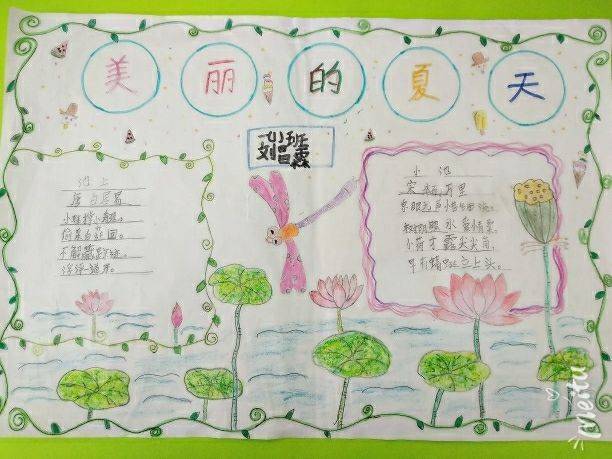 美丽的夏天
池上
唐 白居易
小娃撑小艇，
偷采白莲回。
不解藏踪迹，
浮萍一道开。
小池
宋 杨万里
泉眼无声惜细流，
树阴照水爱晴柔。
小荷才露尖尖角，
早有蜻蜓立上头。
班
刘
Meitu